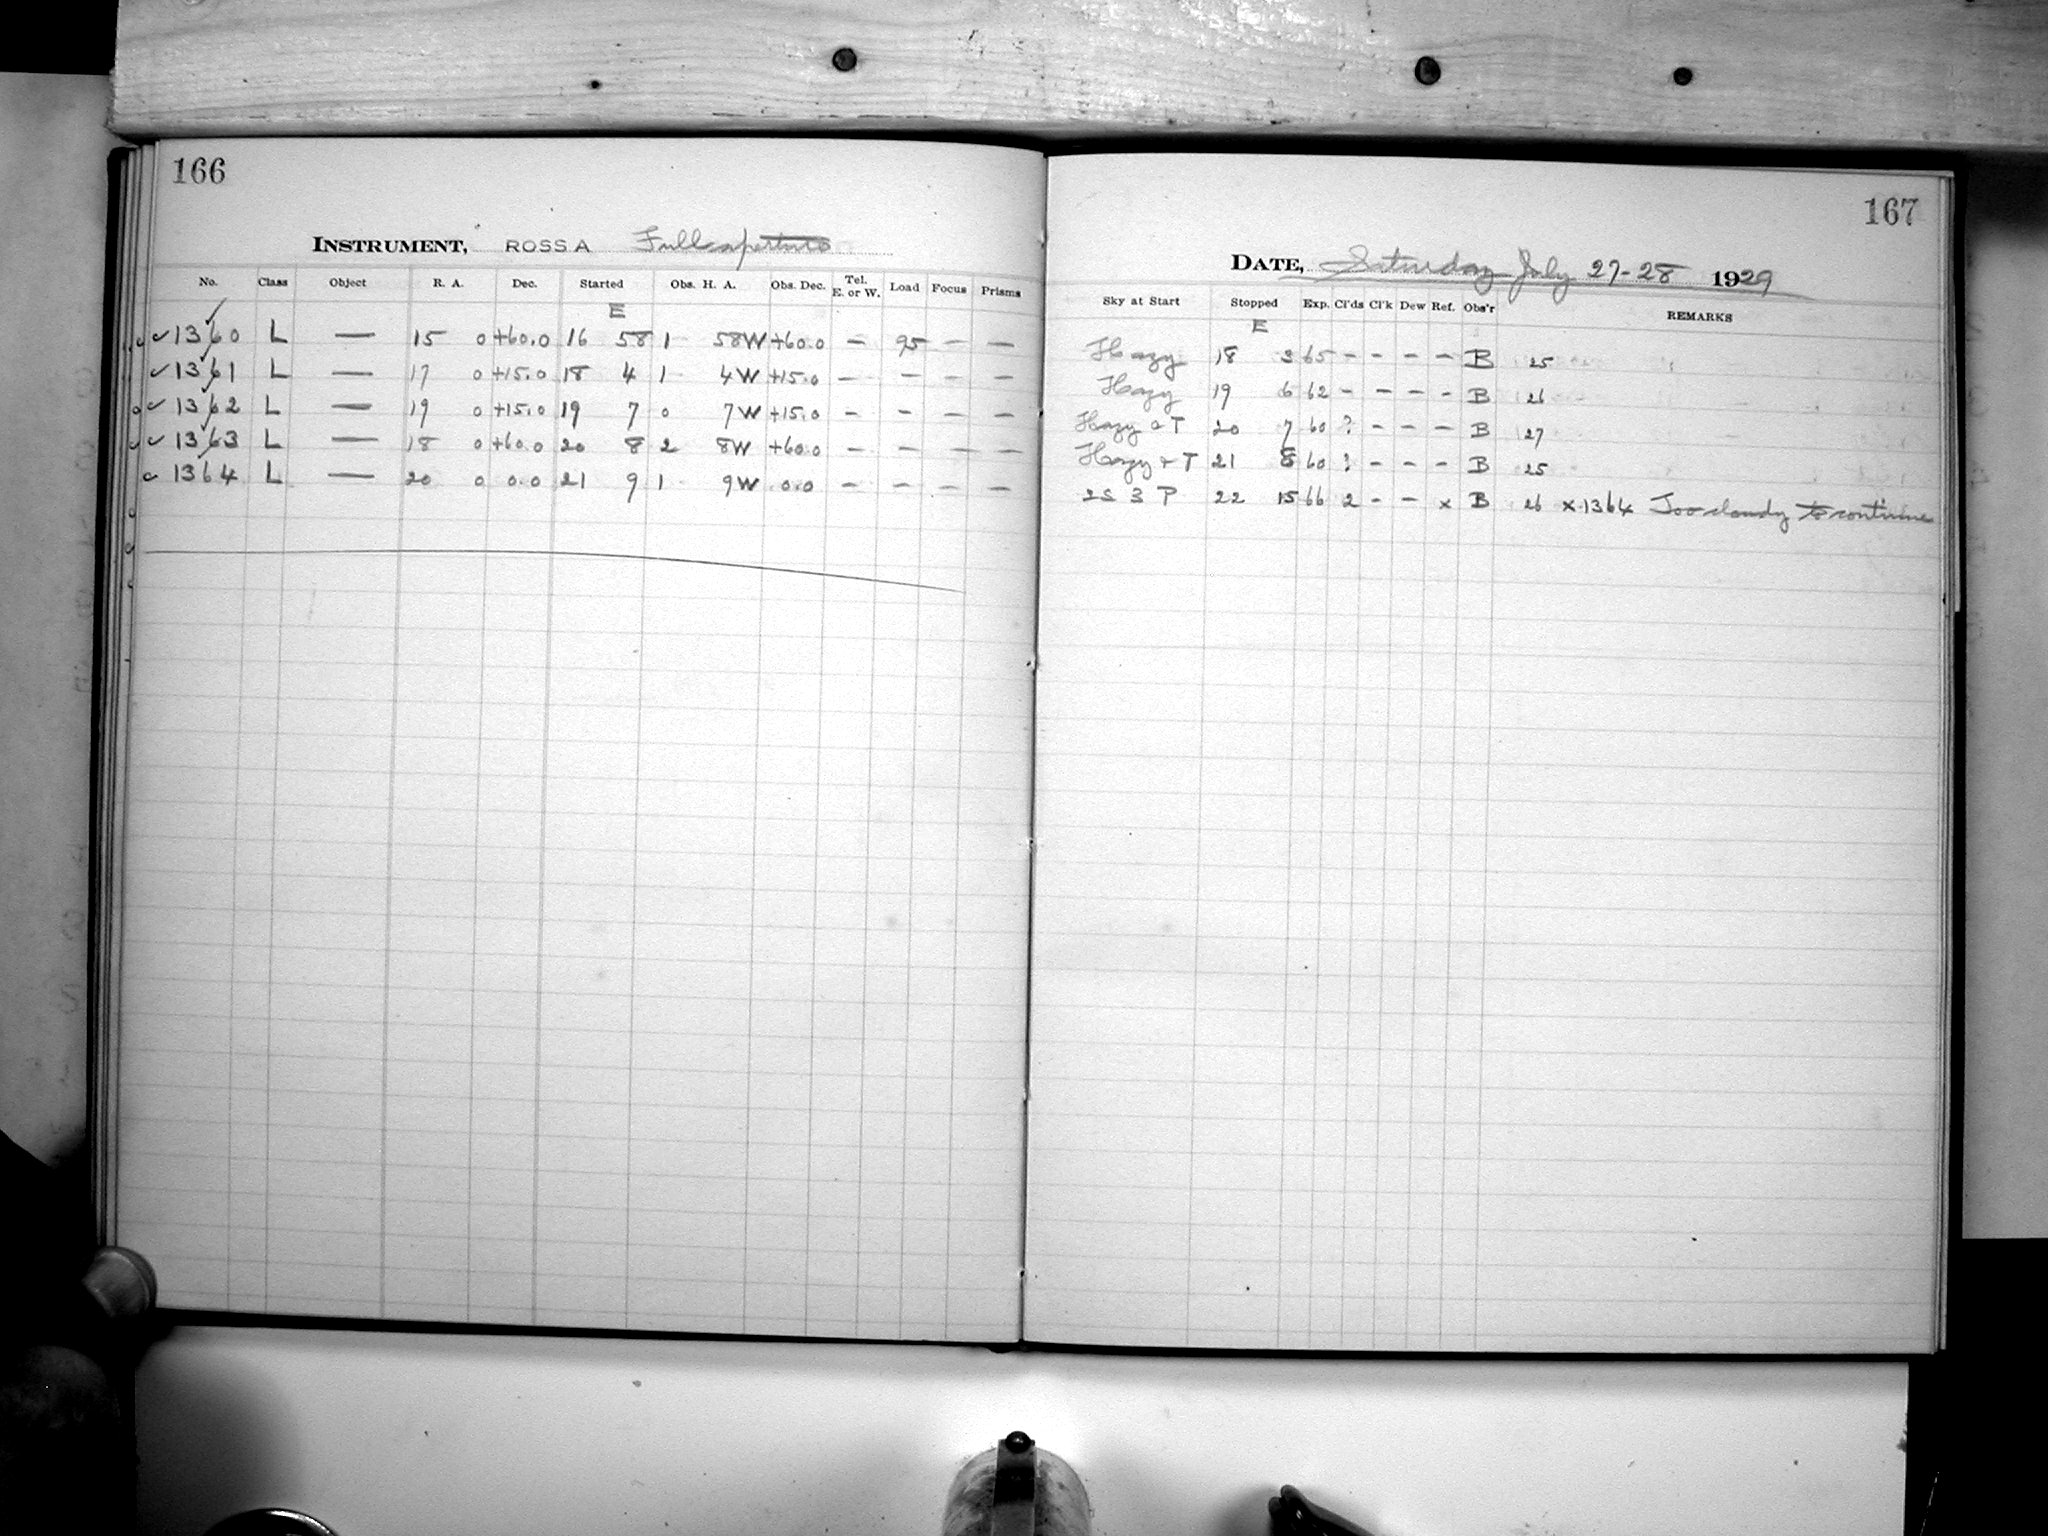 166
INSTRUMENT, ROSS A Full aperture
No. Class Object R. A. Dec. Started Obs. H. A. Obs. Dec. Tel. E. or W. Load Focus Prisms
E
1360 L — 15 0 +60.0 16 58 1 58W +60.0 — 95 — —
1361 L — 17 0 +15.0 18 4 1 4W +15.0 — — — —
1362 L — 19 0 +15.0 19 7 0 7W +15.0 — — — —
1363 L — 18 0 +60.0 20 8 2 8W +60.0 — — — —
1364 L — 20 0 0.0 21 9 1 9W 0.0 — — — —
167
DATE, Saturday July 27-28 1929
Sky at Start Stopped Exp. Cl'ds Cl'k Dew Ref. Obs'r REMARKS
E
Hazy 18 3 65 — — — — B 25
Hazy 19 6 62 — — — — B 26
Hazy & T 20 7 60 ? — — — B 27
Hazy & T 21 8 60 ? — — — B 25
2S 3 P 22 15 66 2 — — x B 26 x 1364 Too cloudy to continue